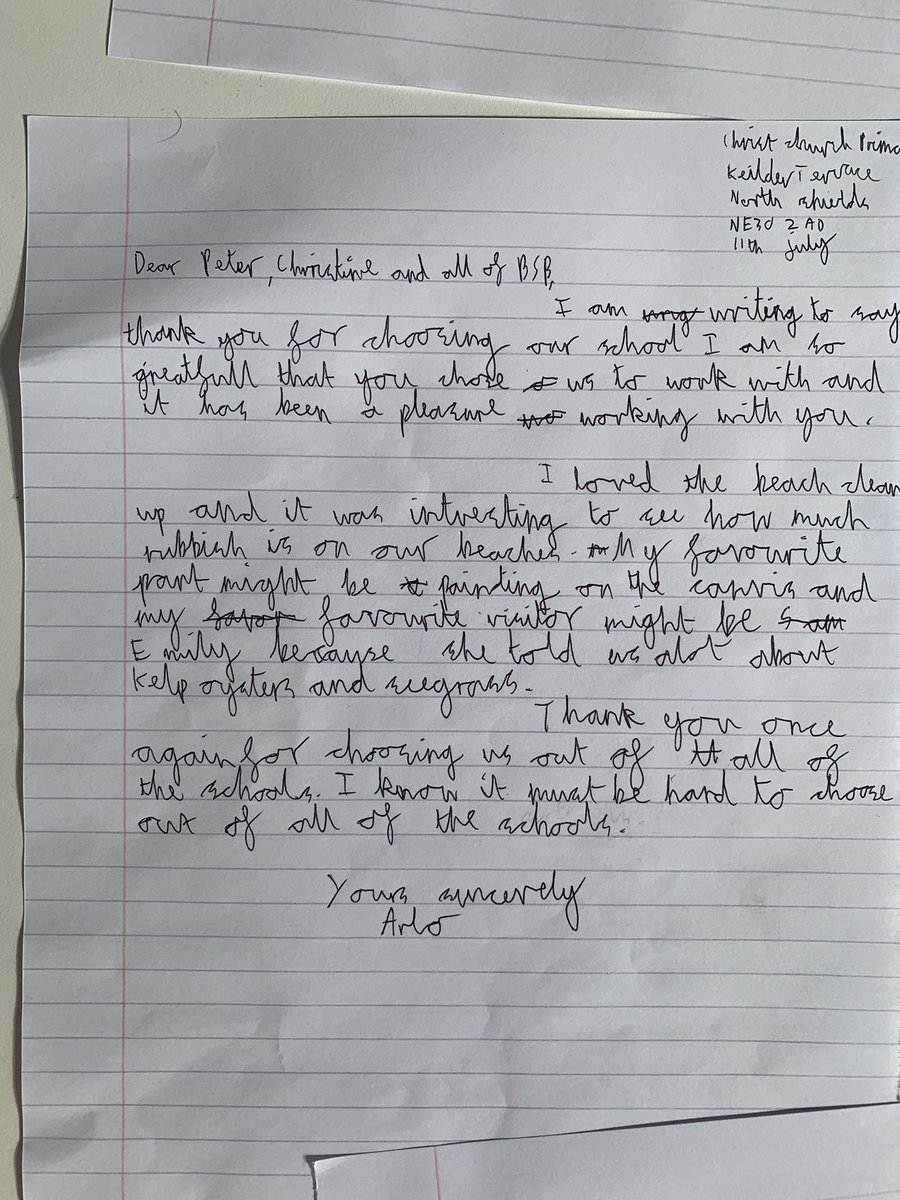 Christ church Prima
Keilder Terrace
North shields
NE30 2 AD
11th july
Dear Peter, Christine and all of BSB,
I am writing to say
thank you for choosing our school I am so
greatfull that you chose us to work with and
it has been a pleasure working with you.
I loved the beach clean
up and it was intresting to see how much
rubbish is on our beaches. My favourite
part might be painting on the canvis and
my favourite visitor might be
Emily because she told us alot about
kelp oysters and seegrass.
Thank you once
again for choosing us out of all of
the schools. I know it must be hard to choose
out of all of the schools.
Yours sincerely
Arlo